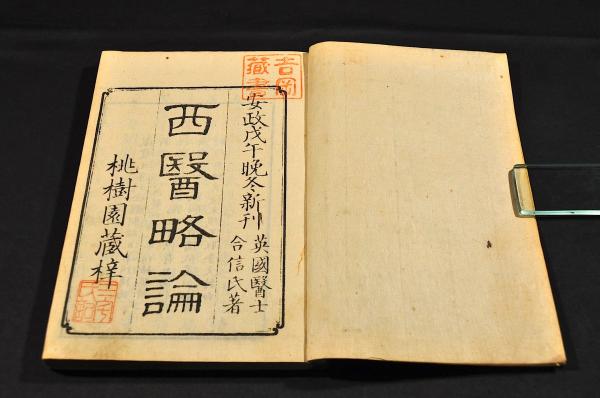 吉岡
藏書
安政戊午晩冬新刊
英國醫士
合信氏著
西醫略論
桃樹園藏梓